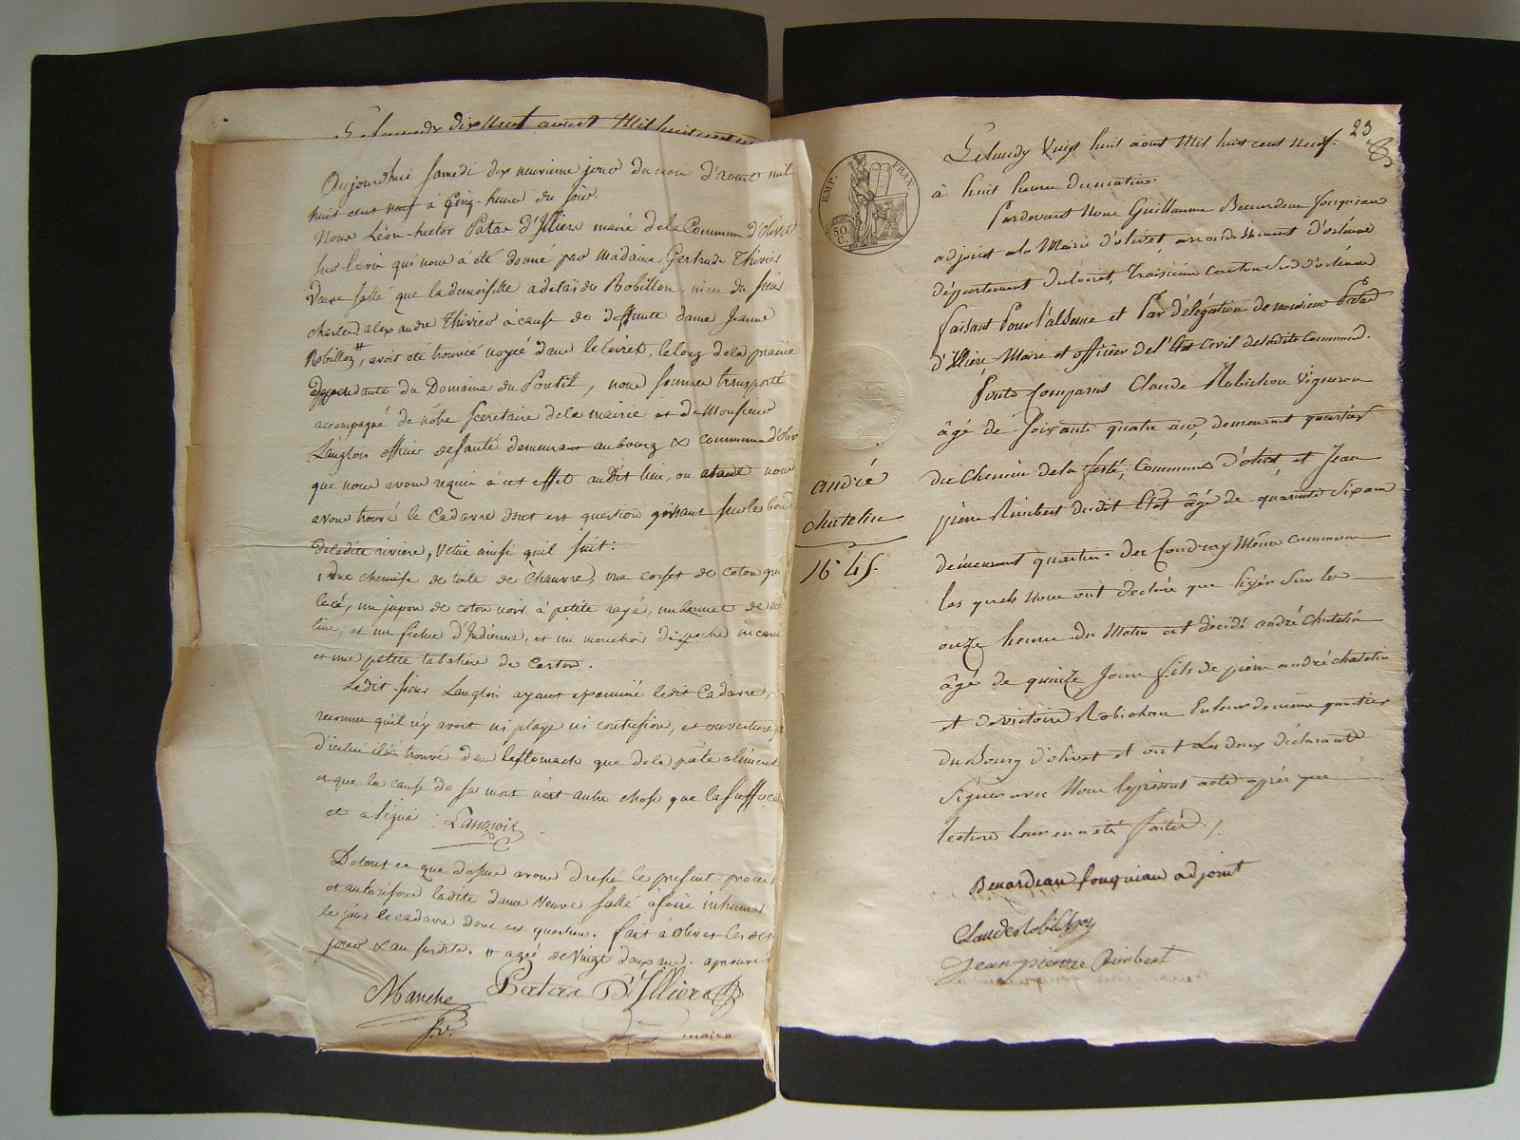 Le lundy dix huit aoust Mil huit cent
Aujourd'hui samedi dix neuvieme jour du mois d'aoust mil
huit cent neuf à Cinq heures du soir.
Nous Léon-hector Patas d'Illiers maire de la Commune d'Olivet
sur l'avis qui nous a été donné par madame Gertrude Thivier
veuve sallé que la demoiselle adelaïde Robillon, niece du sieur
charles alexandre Thivier à cause de deffunte dame Jeanne
Robillon #, avoit été trouvée noyée dans le loiret, le long de la prairie
dépendante du Domaine du Poutil, nous sommes transporté
accompagné de notre secretaire de la mairie et de Monsieur
Langlois officier de santé demeurant au bourg & commune d'Oliv
que nous avons requis à cet effet audit lieu, ou étant nous
avons trouvé le Cadavre dont est question gissant sur le bord
de ladite riviere, vetue ainsi qu'il suit:
1 Une chemise de toile de Chanvre, une corset de coton
lacé, un jupon de coton noir à petite rayé, un bonnet de
et un fichu d'Indienne, et un mouchoir de poche
et une petite tabatiere de Carton.
Ledit sieur Langlois ayant examiné ledit Cadavre,
reconnu qu'il n'y avoit ni playe ni contusion, et ouverture
d'icelui n'a trouvé dans l'estomach que de la pate aliment
et que la cause de sa mort n'est autre chose que la suffoca
et a signé: Langlois
De tout ce que dessus avons dressé le present procès
et autorisons ladite dame Veuve sallé à faire inhumer
le cadavre dont est question. fait à olivet les
jour & an susdits. # agée de Vingt deux ans. approuvé
Manche
Patas D'Illiers
maire
23
EMP. FRAN.
50 C.
Le lundy Vingt huit aout Mil huit cent neuf.
à huit heures du matin
Pardevant Nous Guillaume Benardeau fouquiau
adjoint à la Mairie d'olivet arrondissement d'orléans
département du loiret, troisieme canton sud d'orléans
faisant Pour l'absence et Par délégation de monsieur Patas
d'Illiers, Maire et officier de l'Etat Civil de ladite Commune.
Sont Comparus Claude Robichon Vigneron
âgé de soixante quatre ans, demeurant quartier
du Chemin de la ferté, Commune d'olivet et Jean
pierre Rimbert dudit Etat âgé de quarante six ans
demeurant quartier des Coudray Même commune
les quels Nous ont declaré que hyer sur les
onze heures du Matin est décédé andré chatelin
âgé de quinze Jours fils de pierre andré chatelin
et de victoire Robichon En leur domicile quartier
du Bourg d'olivet et ont les deux déclarants
signés avec Nous le présent acte après que
lecture leur en a été faite ./.
andré
chatelin
16 45.
Benardeau fouquiau adjoint
Claude Robichon
Jean pierre Rimbert